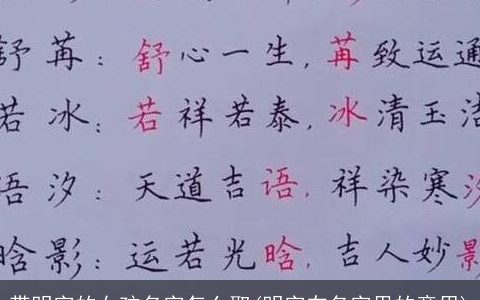 舒苒：舒心一生，苒致运通
若冰：若祥若泰，冰清玉洁
语汐：天道吉语，祥染寒汐
晗影：运若光晗，吉人妙影
带明字的女孩名字怎么取(明字在名字里的意思)